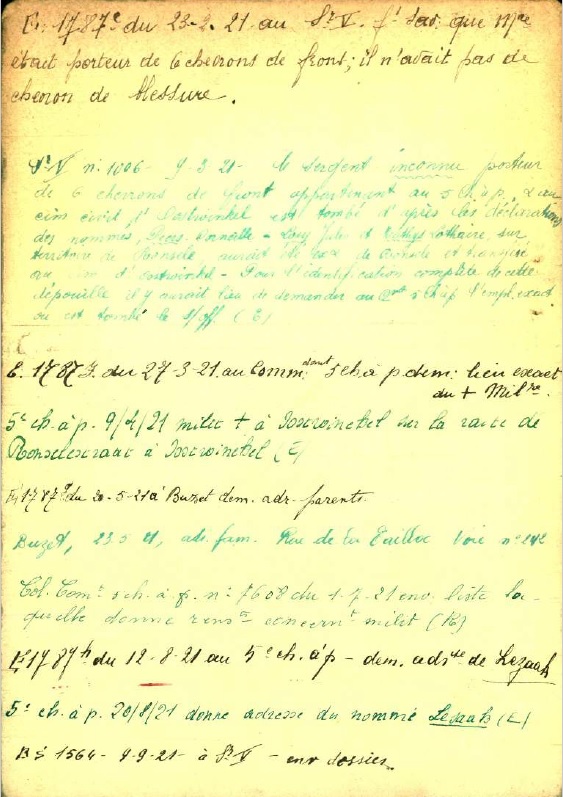 E. 1787e du 23-2-21 au St V. f. sav. que Mre
était porteur de 6 chevrons de front; il n'avait pas de
chevron de blessure.
St V n. 1006 - 9-3-21 - le sergent inconnu porteur
de 6 chevrons de front appartenant au 5 ch à p, au
cim civil d'Oostwinkel est tombé d'après les déclarations
des nommés, - Jules et Lothaire, sur
territoire de Ronsele aurait été de Ronsele et transféré
au cim d'Oostwinkel - Pour l'identification complète de cette
dépouille il y aurait lieu de demander au 5 ch à p l'empl. exact
où est tombé le s/off. (E)
E. 1787f. du 27-3-21 au Commdant 5 ch à p. dem. lieu exact
du + Milre.
5e ch. à p. 9/4/21 milre + à Oostwinckel sur la route de
à Oostwinckel (E)
E. 1787g du 20-5-21 à Buzet dem. adr. parents.
Buzet, 23 5 21, ad. fam. Rue de la Voie n° 242
Col. Comt 5 ch. à p. n° 7608 du 1-7-21 env. liste la-
quelle donne rensts concernt milre (E)
E 1787h du 12-8-21 au 5e ch. à p - dem. adsse de Lezaak
5e ch. à p. 20/8/21 donne adresse du nommé Lesaak (E)
BS 1564 - 9-9-21 - à St V - env dossier.